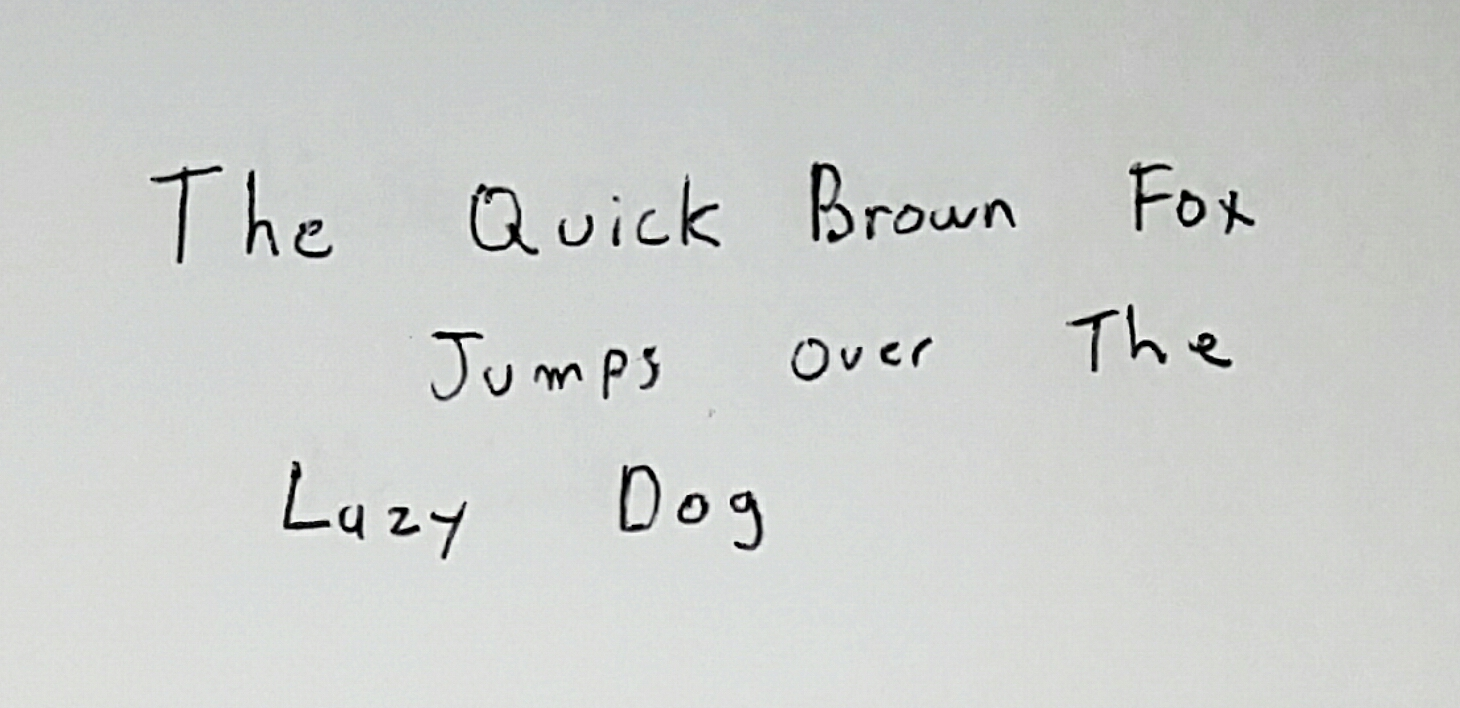 The Quick Brown Fox
Jumps over The
Lazy Dog